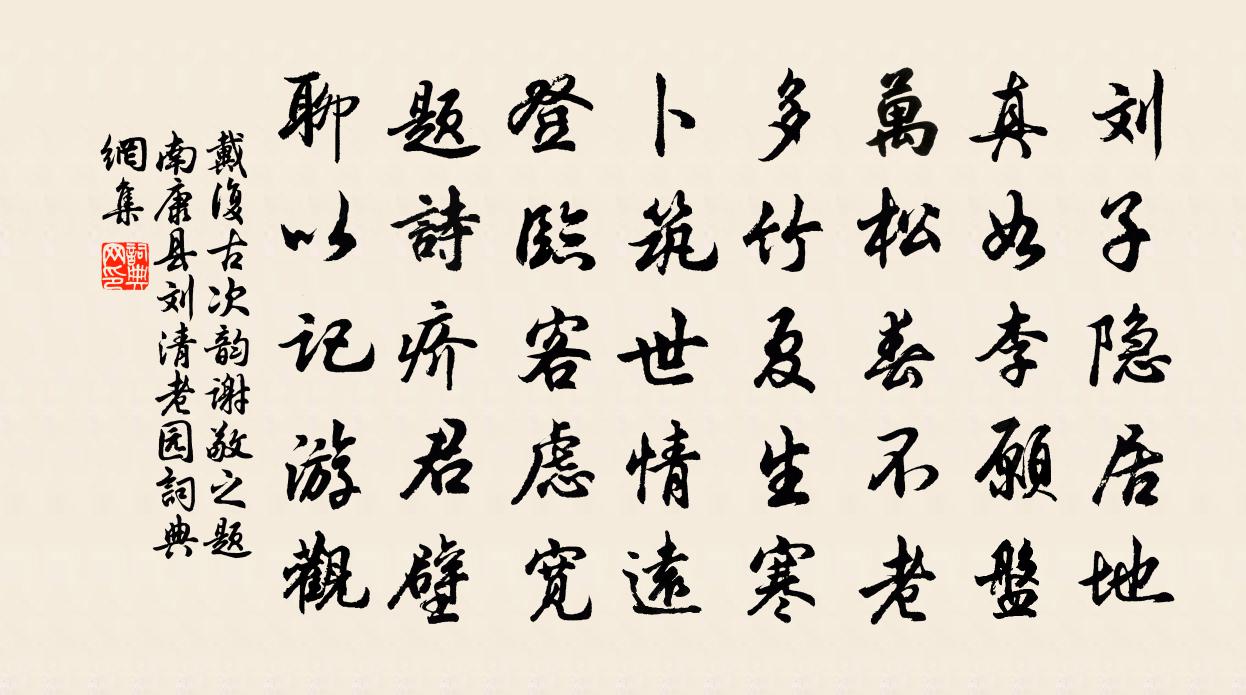 刘子隐居地
真如李願盤
萬松春不老
多竹夏生寒
卜筑世情遠
登臨客慮宽
题詩疥君壁
聊以记游觀
戴復古次韵谢敬之题
南康县刘清老园詞典
網集
詞典
网印